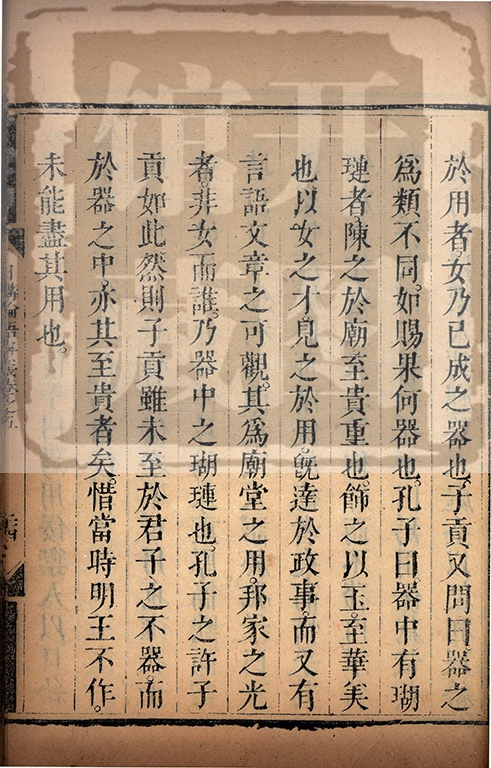 於用者女乃已成之器也子貢又問曰器之
爲類不同如賜果何器也孔子曰器中有瑚
璉者陳之於廟至貴重也飾之以玉至華美
也以女之才見之於用旣達於政事而又有
言語文章之可觀其爲廟堂之用邦家之光
者非女而誰乃器中之瑚璉也孔子之許子
貢如此然則子貢雖未至於君子之不器而
於器之中亦其至貴者矣惜當時明王不作
未能盡其用也